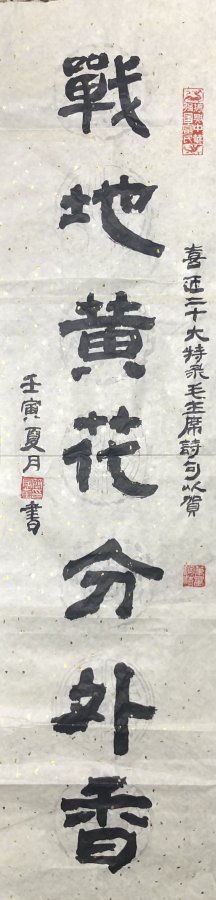 喜迎二十大特录毛主席诗句以贺
戰地黄花分外香
壬寅夏月
書